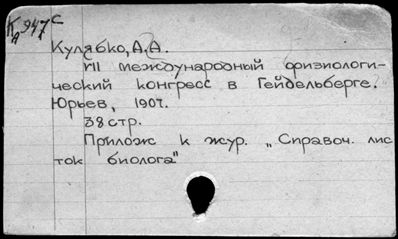 К 947 с
Кулябко, А.А.
VII международный физиологи-
ческий конгресс в Гейдельберге.
Юрьев, 1907.
38 стр.
Прилож к жур. „Справоч. лис
ток биолога"